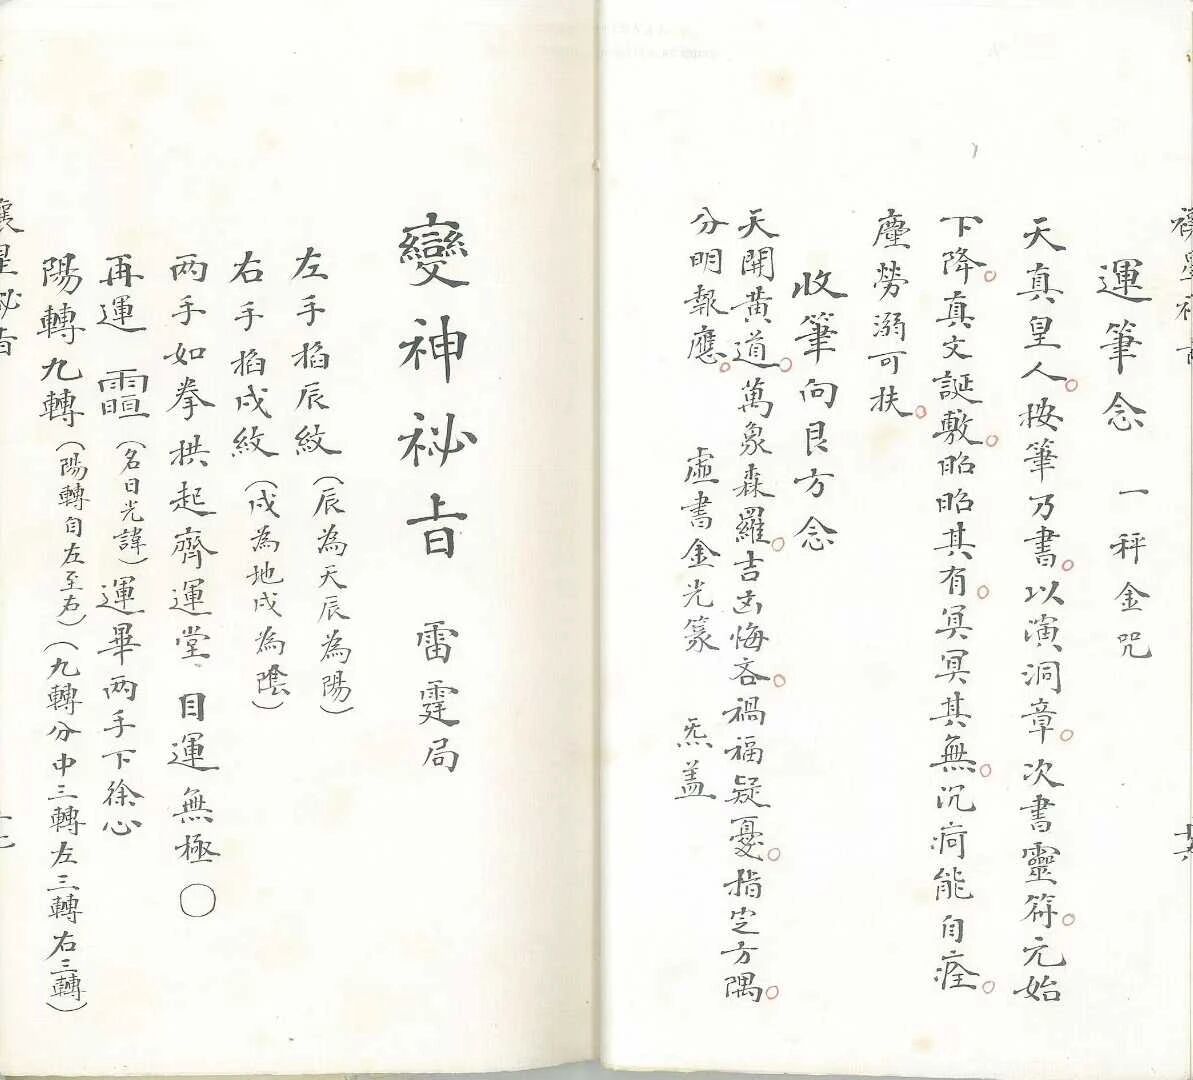 運筆念 一秤金咒
天真皇人。按筆乃書。以演洞章。次書靈符。元始
下降。真文誕敷。昭昭其有。冥冥其無。沉疴能自痊。
塵勞溺可扶。
收筆向艮方念
天開黃道。萬象森羅。吉凶悔吝。禍福疑憂。指定方隅。
分明報應。 虛書金光篆 炁蓋
十六
變神祕旨 雷霆局
左手掐辰紋(辰為天辰為陽)
右手掐戌紋(戌為地戌為陰)
两手如拳拱起齊運堂目運無極〇
再運(名日光諱)運畢两手下徐心
陽轉九轉(陽轉自左至右)(九轉分中三轉左三轉右三轉)
襄星祕旨